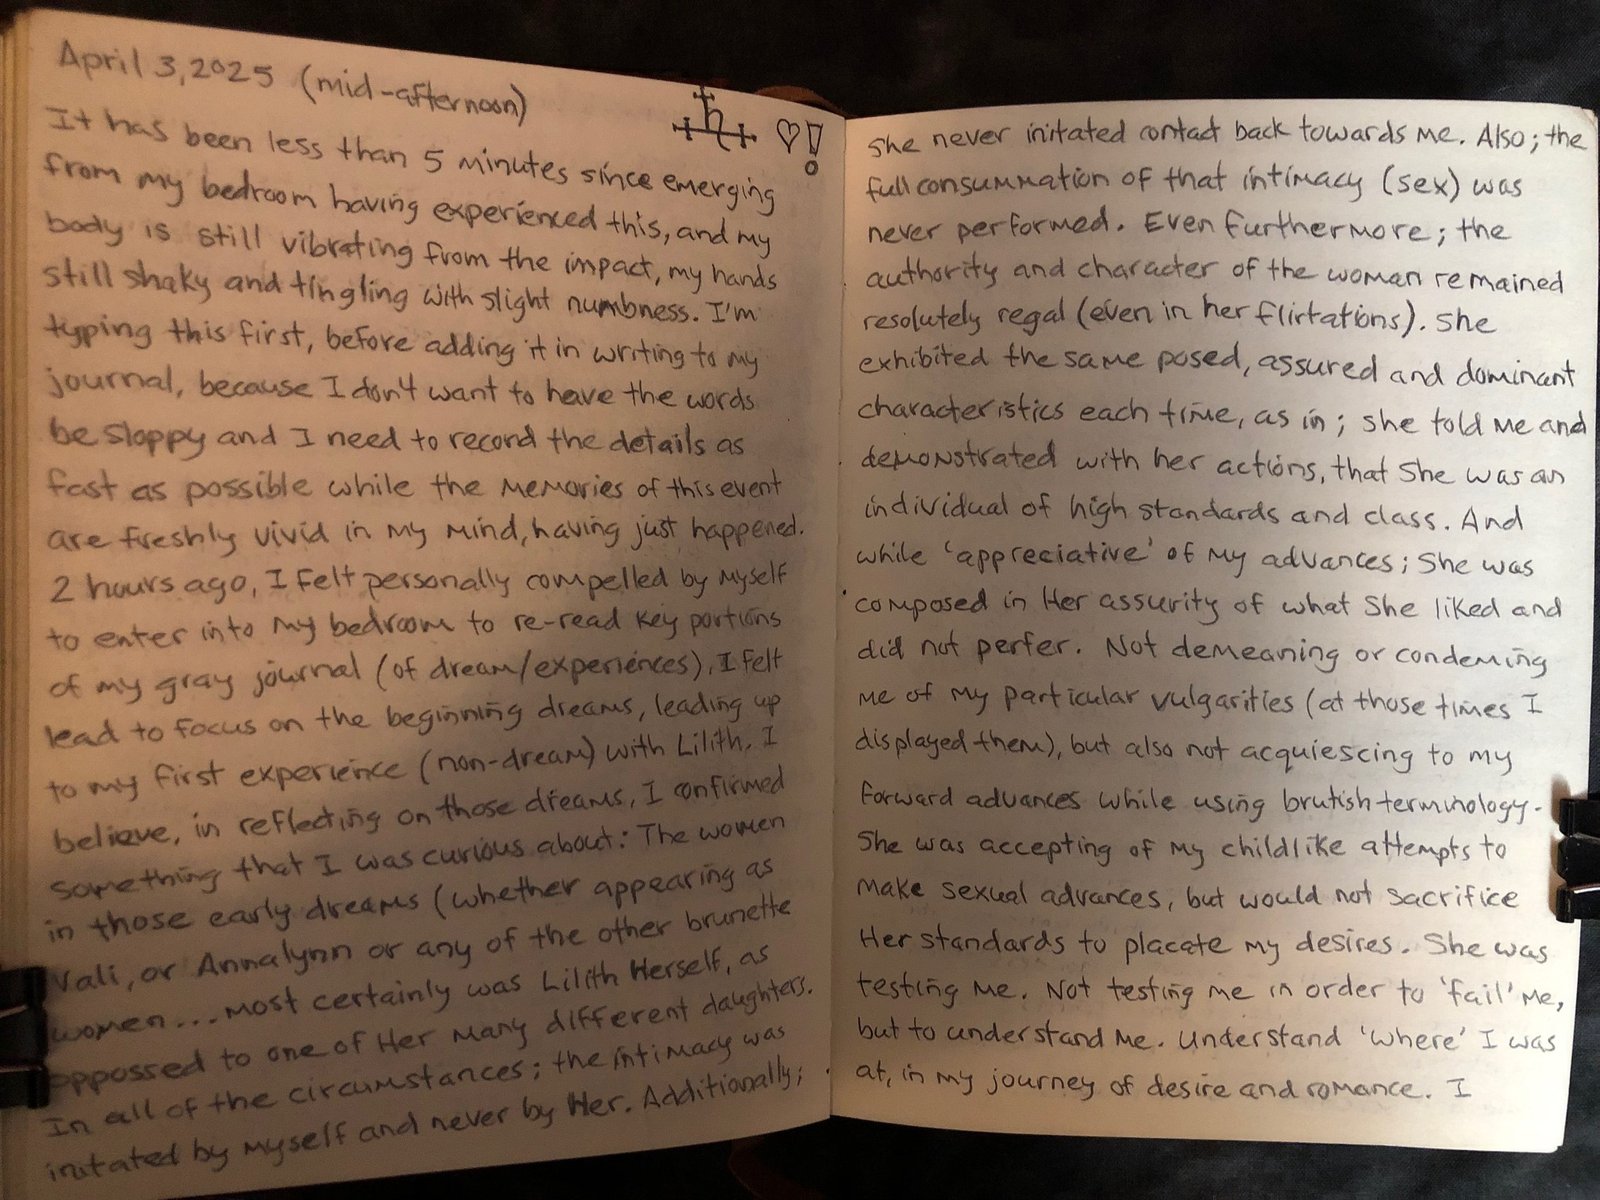 April 3, 2025 (mid-afternoon)
♡!
It has been less than 5 minutes since emerging
from my bedroom having experienced this, and my
body is still vibrating from the impact, my hands
still shaky and tingling with slight numbness. I'm
typing this first, before adding it in writing to my
journal, because I don't want to have the words
be sloppy and I need to record the details as
fast as possible while the memories of this event
are freshly vivid in my mind, having just happened.
2 hours ago, I felt personally compelled by myself
to enter into my bedroom to re-read key portions
of my gray journal (of dream/experiences). I felt
lead to focus on the beginning dreams, leading up
to my first experience (non-dream) with Lilith. I
believe, in reflecting on those dreams, I confirmed
something that I was curious about: The women
in those early dreams (whether appearing as
Vali, or Annalynn or any of the other brunette
women... most certainly was Lilith Herself, as
oppossed to one of Her many different daughters.
In all of the circumstances; the intimacy was
initated by myself and never by Her. Additionally;
She never initated contact back towards me. Also; the
full consummation of that intimacy (sex) was
never performed. Even furthermore; the
authority and character of the woman remained
resolutely regal (even in her flirtations). She
exhibited the same posed, assured and dominant
characteristics each time, as in; she told me and
demonstrated with her actions, that She was an
individual of high standards and class. And
while 'appreciative' of my advances; She was
composed in Her assurity of what She liked and
did not perfer. Not demeaning or condeming
me of my particular vulgarities (at those times I
displayed them), but also not acquiescing to my
forward advances while using brutish terminology.
She was accepting of my childlike attempts to
make sexual advances, but would not sacrifice
Her standards to placate my desires. She was
testing me. Not testing me in order to 'fail' me,
but to understand me. Understand 'where' I was
at, in my journey of desire and romance. I